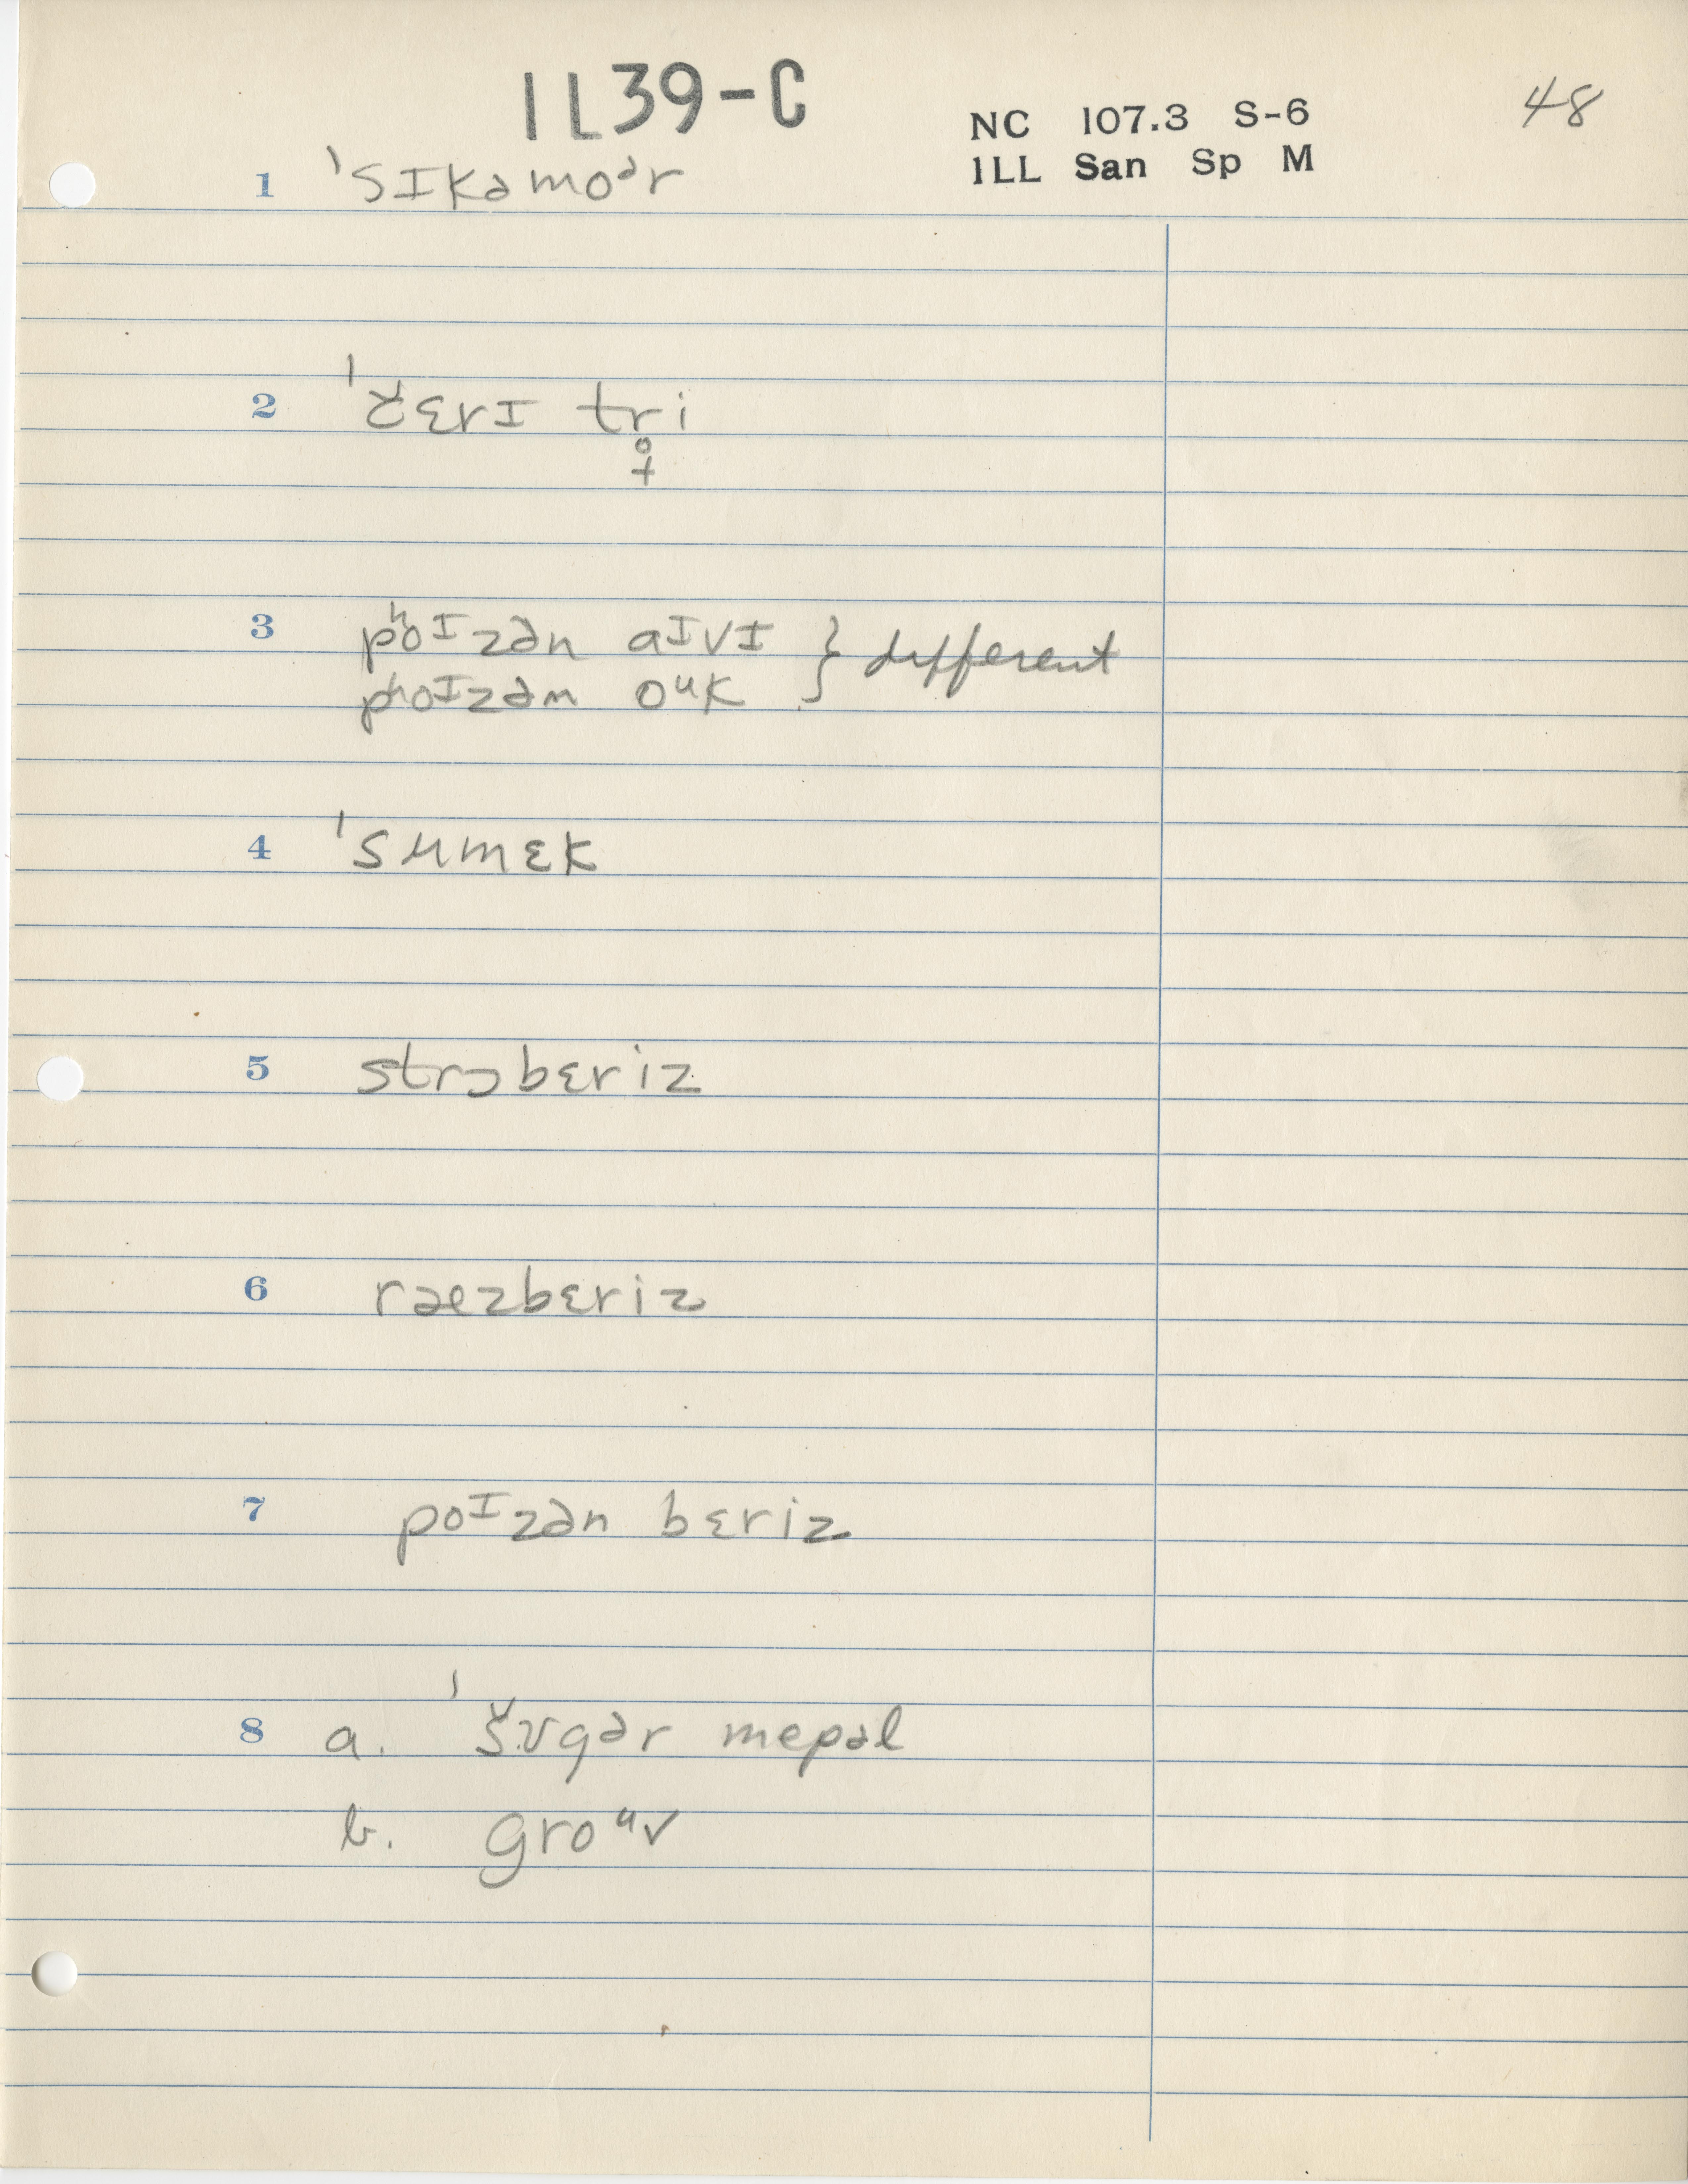 1L39-C
NC 107.3 S-6
1LL San Sp M
48
1 ˈsɪkəmoᵊr
2 ˈčɛrɪ tr̥i
3 pʰoᴵzən aᴵvɪ } different
pʰoᴵzən oᵘk
4 ˈsumɛk
5 strɔbɛriz
6 ræzbɛriz
7 poᴵzən bɛriz
8 a. ˈšʊgər mepəl
b. groᵘv